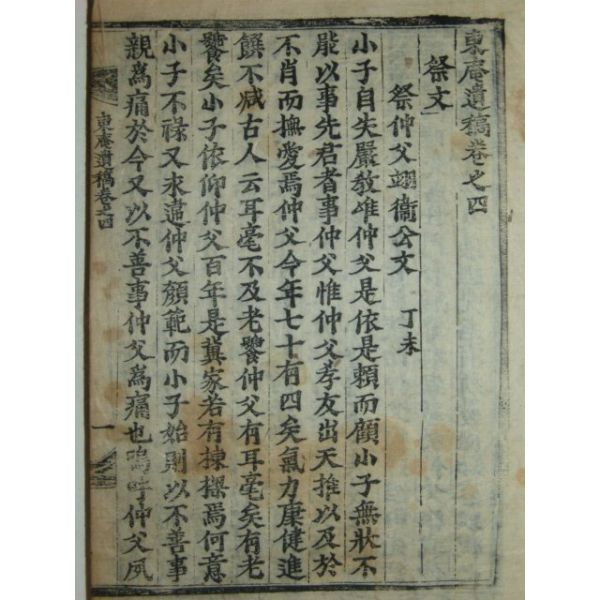 東庵遺稿卷之四
祭文
祭仲父翊衛公文 丁未
小子自失嚴教唯仲父是依是賴而顧小子無狀不
能以事先君者事仲父惟仲父孝友出天推以及於
不肖而撫愛焉仲父今年七十有四矣氣力康健進
饌不减古人云耳毫不及老饕仲父有耳毫矣有老
饕矣小子依仰仲父百年是冀家若有棟樑焉何意
小子不祿又永違仲父顏範而小子始則以不善事
親爲痛於今又以不善事仲父爲痛也嗚呼仲父夙
東庵遺稿卷之四
一